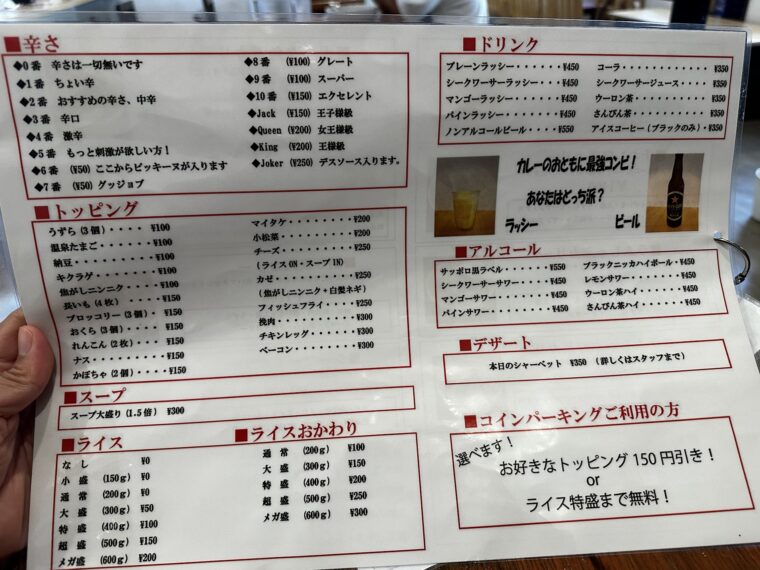 ■辛さ
◆0番 辛さは一切無いです
◆1番 ちょい辛
◆2番 おすすめの辛さ、中辛
◆3番 辛口
◆4番 激辛
◆5番 もっと刺激が欲しい方！
◆6番 (¥50) ここからピッキーヌが入ります
◆7番 (¥50) グッジョブ
◆8番 (¥100) グレート
◆9番 (¥100) スーパー
◆10番 (¥150) エクセレント
◆Jack (¥150) 王子様級
◆Queen (¥200) 女王様級
◆King (¥200) 王様級
◆Joker (¥250) デスソース入ります。
■トッピング
うずら(3個)・・・・ ¥100
温泉たまご・・・・・・¥100
納豆・・・・・・・・・¥100
キクラゲ・・・・・・・¥100
焦がしニンニク・・・・¥100
長いも(4枚)・・・・¥150
ブロッコリー(3個)・・¥150
おくら(3個)・・・・¥150
れんこん(2枚)・・・¥150
ナス・・・・・・・・・¥150
かぼちゃ(2個)・・・・¥150
マイタケ・・・・・・・・¥200
小松菜・・・・・・・・・¥200
チーズ・・・・・・・・・¥250
(ライスON・スープIN)
カゼ・・・・・・・・・・¥250
(焦がしニンニク・白髪ネギ)
フィッシュフライ・・・・¥250
挽肉・・・・・・・・・・¥300
チキンレッグ・・・・・・¥300
ベーコン・・・・・・・・¥300
■スープ
スープ大盛り(1.5倍) ¥300
■ライス
なし ¥0
小盛 (150g) ¥0
通常 (200g) ¥0
大盛 (300g) ¥50
特盛 (400g) ¥100
超盛 (500g) ¥150
メガ盛 (600g) ¥200
■ライスおかわり
通常 (200g) ¥100
大盛 (300g) ¥150
特盛 (400g) ¥200
超盛 (500g) ¥250
メガ盛 (600g) ¥300
■ドリンク
プレーンラッシー・・・・・¥450
シークワーサーラッシー・・・¥450
マンゴーラッシー・・・・・¥450
パインラッシー・・・・・・¥450
ノンアルコールビール・・・・¥550
コーラ・・・・・・・・・・・・¥350
シークワーサージュース・・・・¥350
ウーロン茶・・・・・・・・・・¥350
さんぴん茶・・・・・・・・・・¥350
アイスコーヒー(ブラックのみ)・¥350
カレーのおともに最強コンビ！
あなたはどっち派？
ラッシー ビール
■アルコール
サッポロ黒ラベル・・・・・¥550
シークワーサーサワー・・・・¥450
マンゴーサワー・・・・・・¥450
パインサワー・・・・・・・¥450
ブラックニッカハイボール・・¥450
レモンサワー・・・・・・・¥450
ウーロン茶ハイ・・・・・・¥450
さんぴん茶ハイ・・・・・・¥450
■デザート
本日のシャーベット ¥350 (詳しくはスタッフまで)
■コインパーキングご利用の方
選べます！
お好きなトッピング150円引き！
or
ライス特盛まで無料！